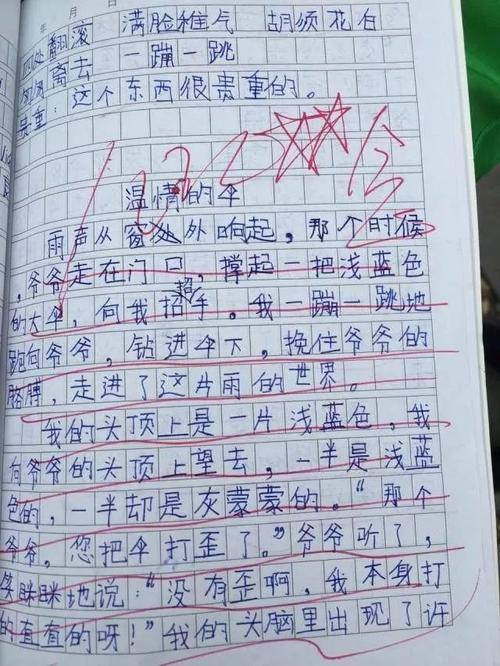 年 月 日
四处翻滚 满脸稚气 胡须花白
离去 一蹦一跳
贵重:这个东西很贵重的。
温情的伞
雨声从窗外处外响起,那个时候
,爷爷走在门口,撑起一把浅蓝色
的大伞,向我招手。我一蹦一跳地
跑向爷爷,钻进伞下,挽住爷爷的
胳膊,走进了这片雨的世界。
我的头顶上是一片浅蓝色,我
向爷爷的头顶上望去,一半是浅蓝
色的,一半却是灰蒙蒙的。“那个
爷爷,您把伞打歪了。”爷爷听了,
笑眯眯地说:“没有歪啊,我本身打
的直直的呀!”我的头脑里出现了许